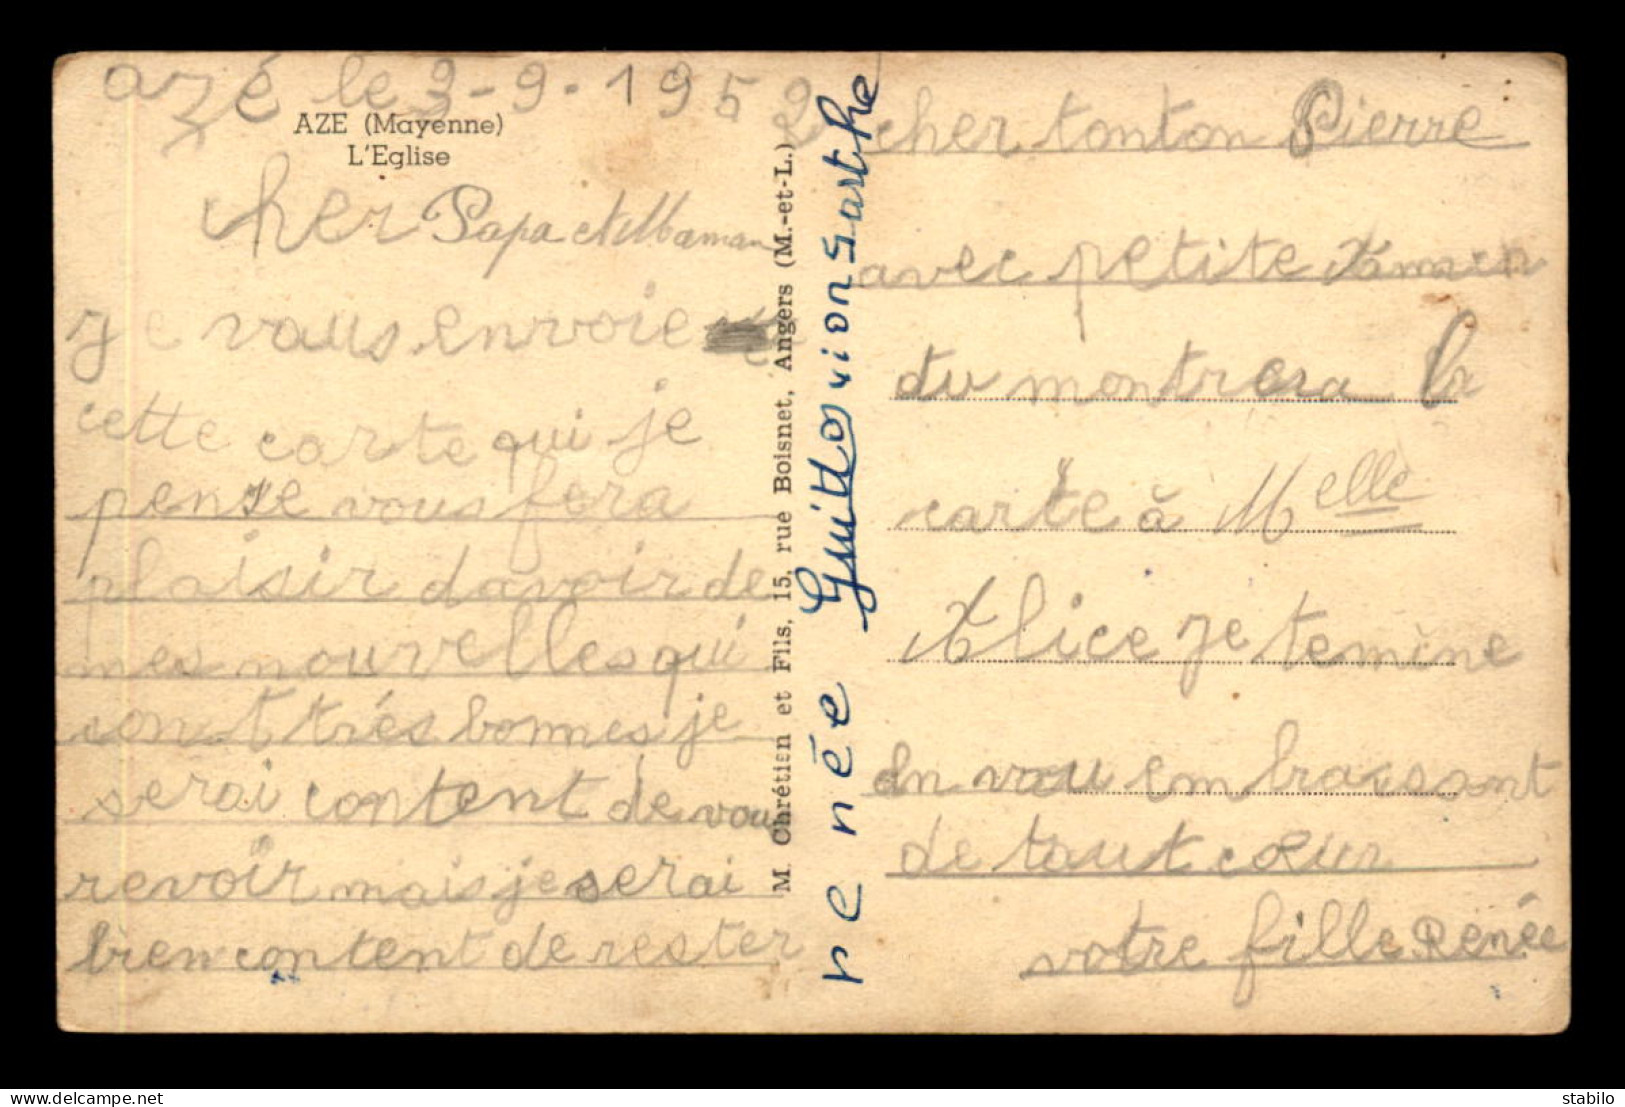 azé le 3-9-1952
AZE (Mayenne)
L'Eglise
cher Papa et Maman
je vous envoie
cette carte qui je
pense vous fera
plaisir davoir de
mes nouvelles qui
sont très bonnes je
serai content de vous
revoir mais je serai
bien content de rester
M. Chrétien et Fils, 15, rue Boisnet, Angers (M.-et-L.)
renée Guitto vion sarthe
cher tonton Pierre
avec petite
du montrera la
carte à Melle
Alice je temine
en vou embrassant
de tout cœur
votre fille Renée
stabilo